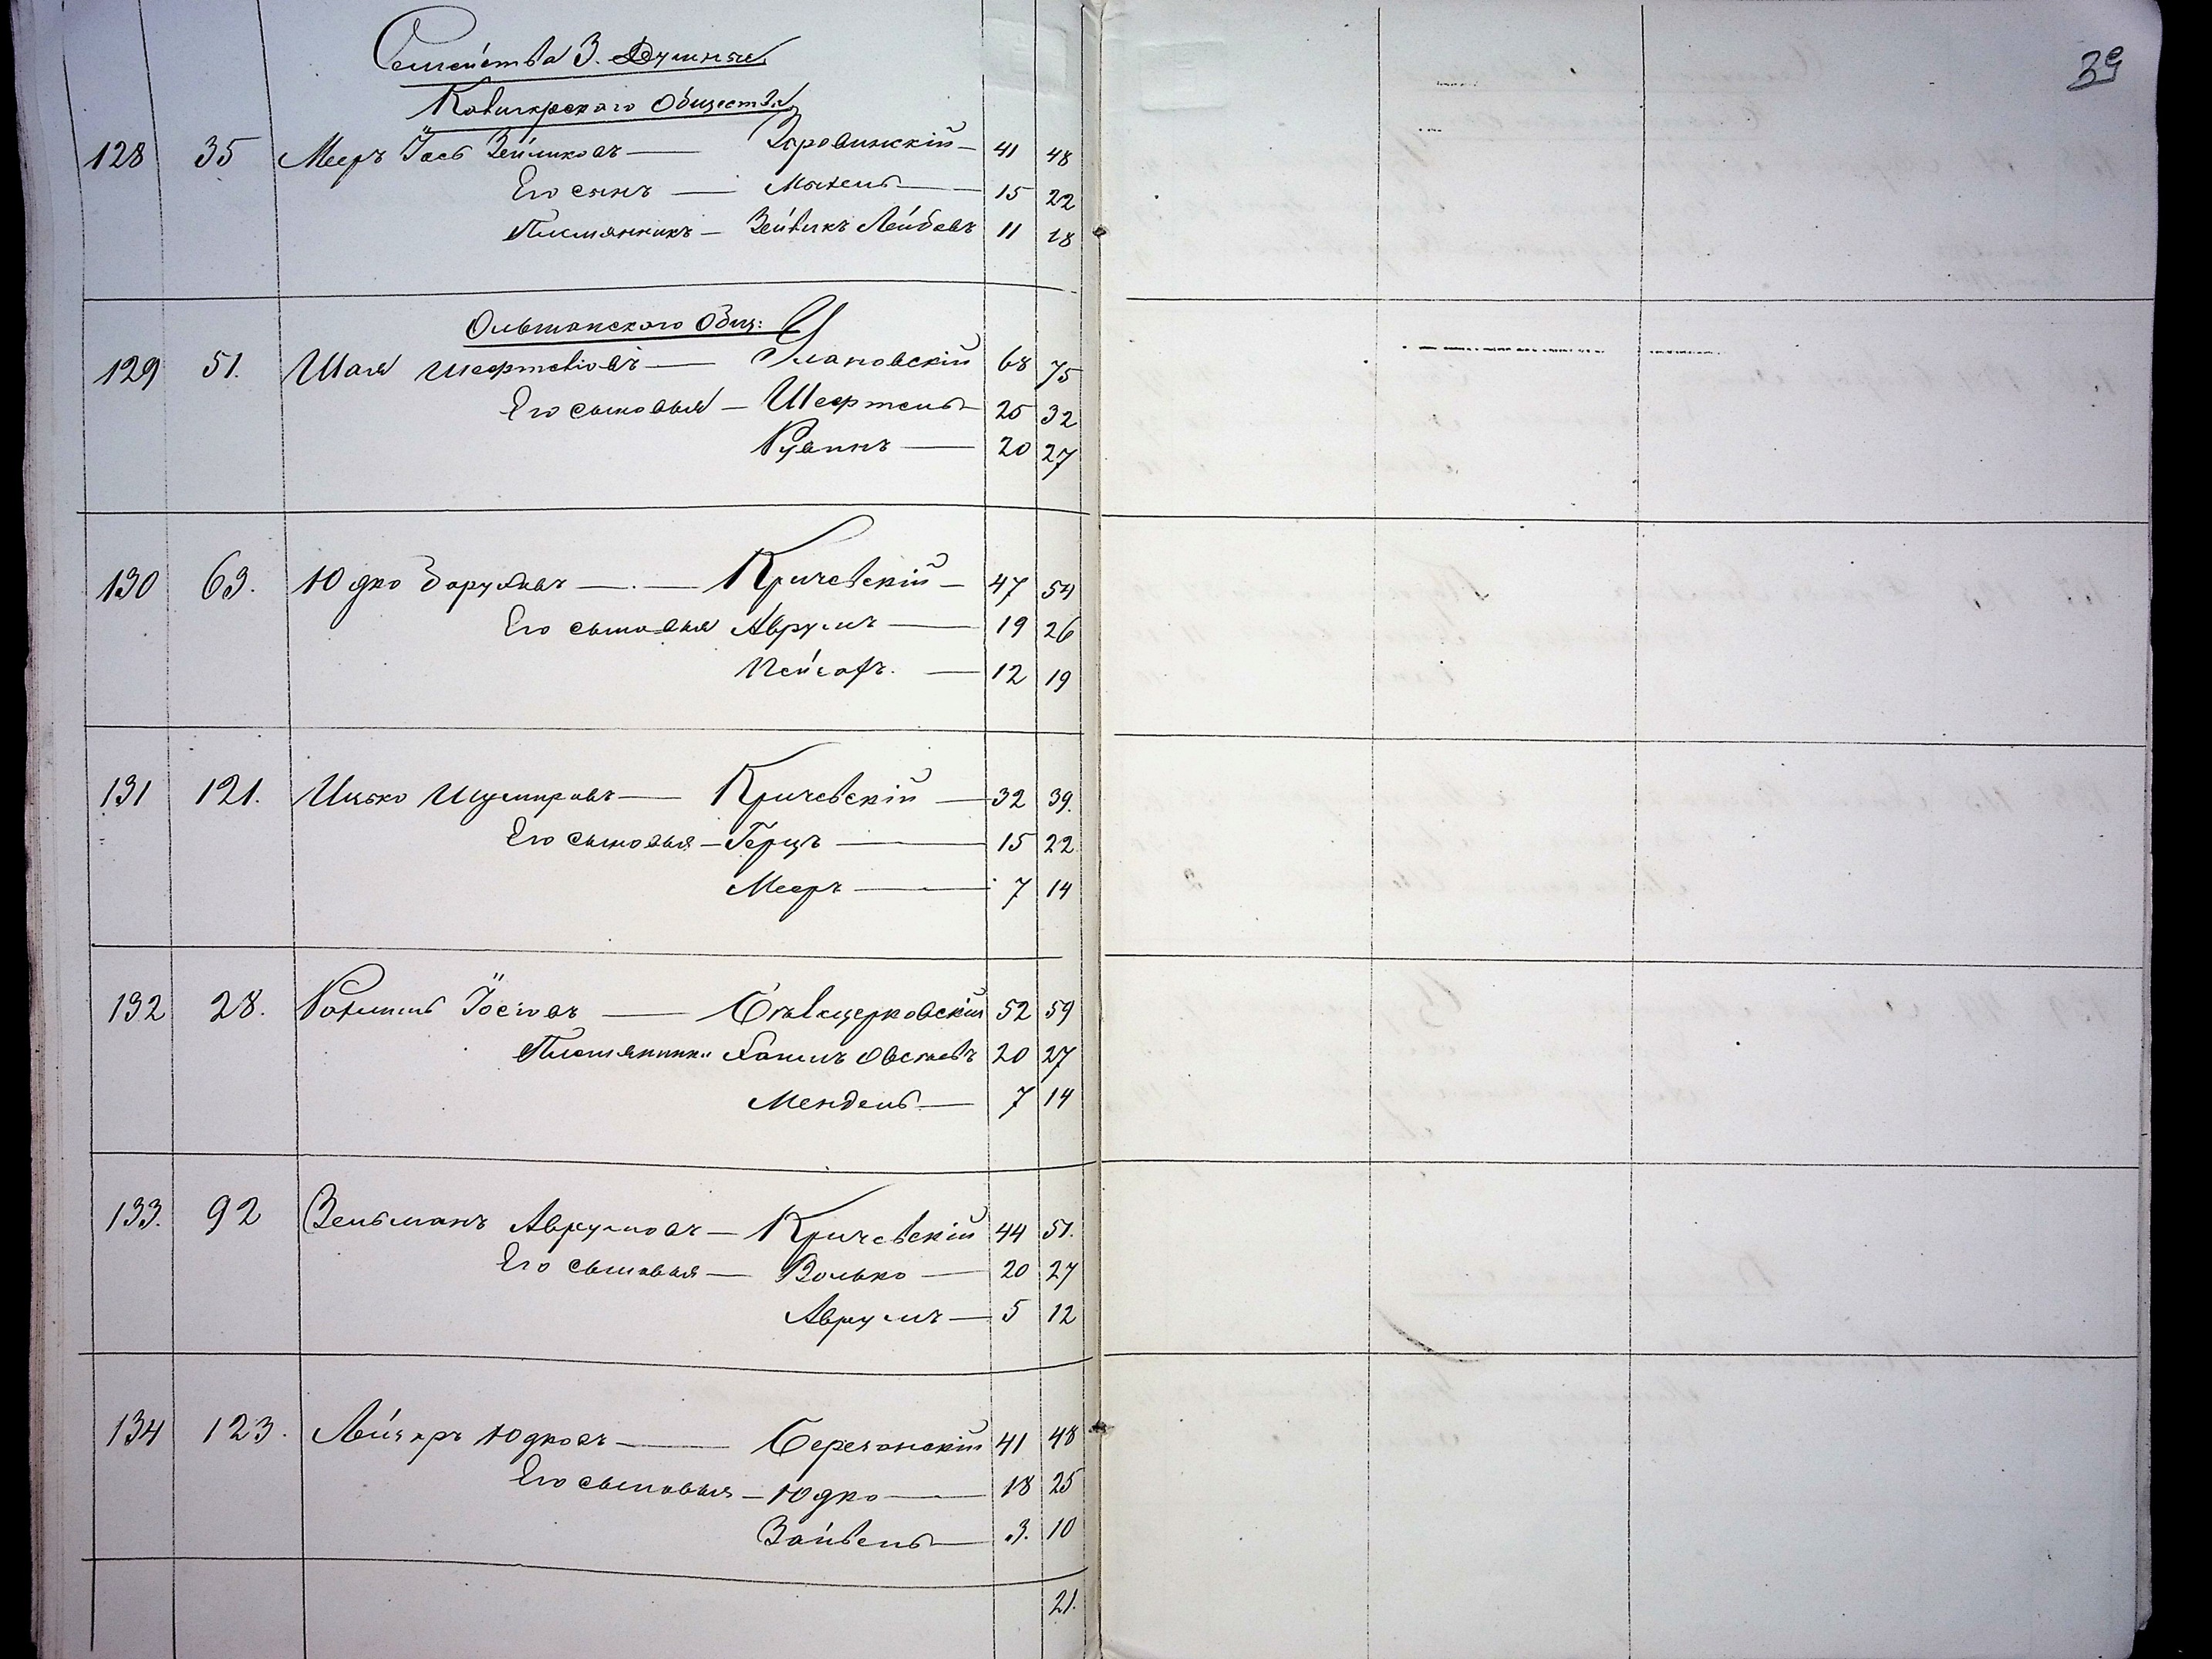 39
Семейства 3. Душные
Кавигарскаго Общества
128 35 Мееръ Іось Зейликовъ — Заровинскій — 41 48
Его сынъ — Мотель — 15 22
Племянникъ — Зейвикъ Лейбовъ 11 18
Ольшанскаго Общ:
129 51. Шая Шефтелiовъ — Улановскій 68 75
Его сыновья — Шефтель 25 32
Рувинъ — 20 27
130 63. Юдко Боруховъ — Кричевскій — 47 54
Его сыновья Аврумъ — 19 26
Пейсахъ. — 12 19
131 121. Ицько Шулимовъ — Кричевскій — 32 39.
Его сыновья — Герцъ — 15 22
Мееръ — 7 14
132 28. Рахмиль Іосіовъ — Бѣлецерковскій 52 59
Племянники Хаимъ Овсѣевъ 20 27
Мендель — 7 14
133. 92 Зельманъ Аврумовъ — Кричевскій 44 51.
Его сыновья — Волько — 20 27
Аврумъ — 5 12
134 123. Лейзеръ Юдковъ — Березанскій 41 48
Его сыновья — Юдко — 18 25
Зайвель — 3. 10
21.